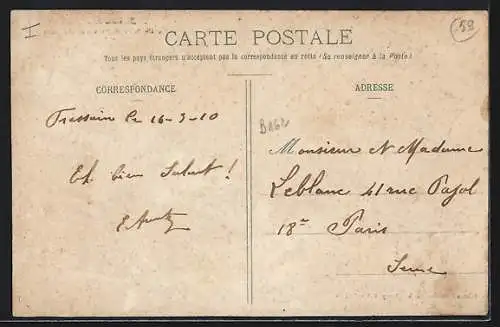 I
59
CARTE POSTALE
Tous les pays étrangers n'acceptent pas la correspondance au recto (Se renseigner à la Poste)
CORRESPONDANCE
le 16-3-10
Eh bien Salut !
ADRESSE
Monsieur et Madame
Leblanc 41 rue Pajol
18e Paris
Seine